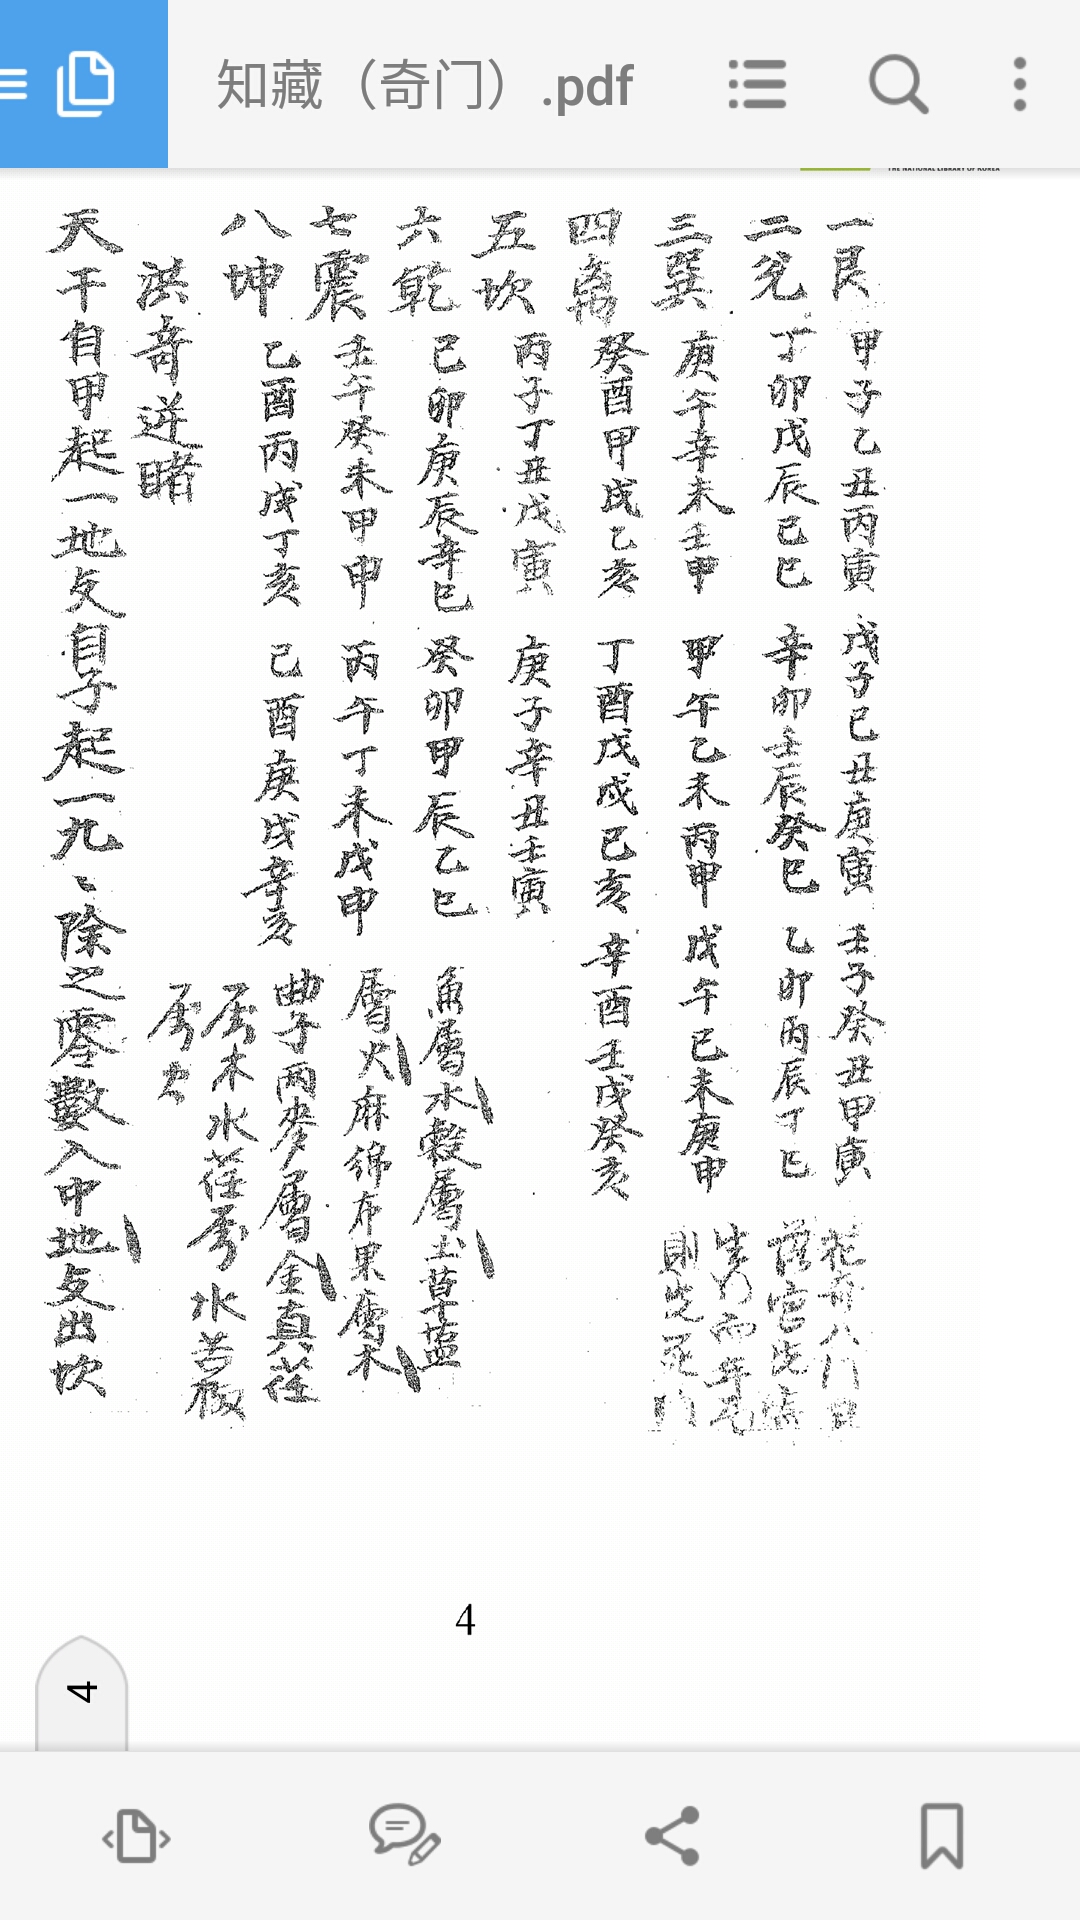 知藏（奇门）.pdf
THE NATIONAL LIBRARY OF KOREA
一艮 甲子乙丑丙寅 戊子己丑庚寅 壬子癸丑甲寅
二兌 丁卯戊辰己巳 辛卯壬辰癸巳 乙卯丙辰丁巳
三巽 庚午辛未壬申 甲午乙未丙申 戊午己未庚申
四離 癸酉甲戌乙亥 丁酉戊戌己亥 辛酉壬戌癸亥
五坎 丙子丁丑戊寅 庚子辛丑壬寅
六乾 己卯庚辰辛巳 癸卯甲辰乙巳
七震 壬午癸未甲申 丙午丁未戊申
八坤 乙酉丙戌丁亥 己酉庚戌辛亥
八门
生门而年
則 死門
魚層水穀層土苗草塩
層火麻綿布果層木
豊 两麥層金真荏
木水荏 水苦椒
洪奇逆睹
天干自甲起一地支自子起一九〻除之零數入中地支出坎
4
4